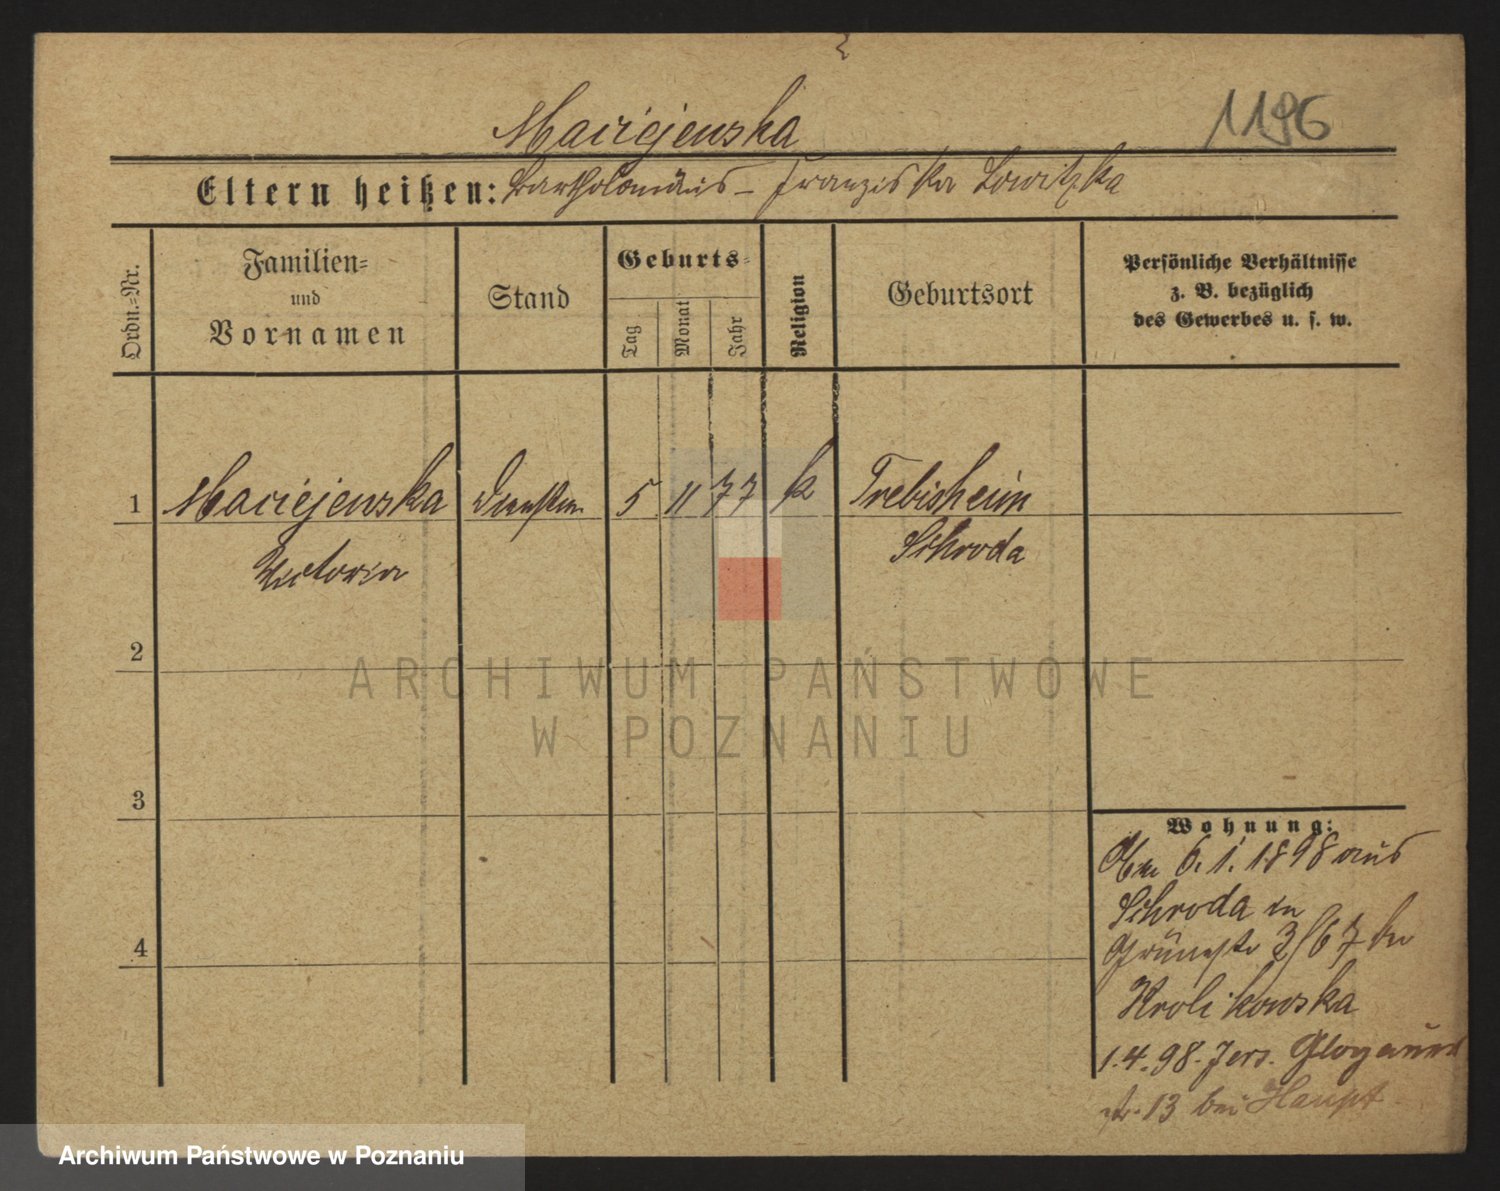 Maciejewska
1196
Eltern heißen: Bartholomäus – Franziska Lowitzka
Ordn.-Nr.
Familien-
und
Vornamen
Stand
Geburts-
Tag
Monat
Jahr
Religion
Geburtsort
Persönliche Verhältnisse
z. B. bezüglich
des Gewerbes u. s. w.
1 Maciejewska 5 11 77 k Trebisheim
Victoria Schroda
2
3
4
ARCHIWUM PAŃSTWOWE
W POZNANIU
Wohnung:
6.1.1898 aus
Schroda in
Grünestr 3/67 bei
Krolikowska
1.4.98. Jers. Glogauer
str. 13 bei Haupt
Archiwum Państwowe w Poznaniu